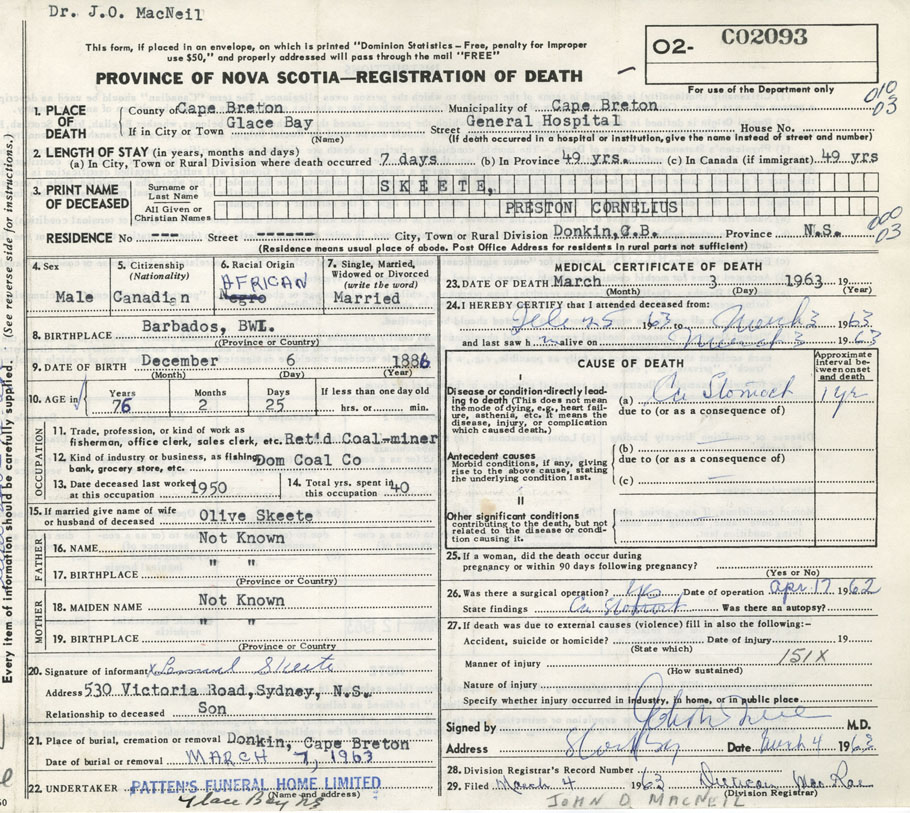 Dr. J.O. MacNeil
This form, if placed in an envelope, on which is printed "Dominion Statistics – Free, penalty for Improper
use $50," and properly addressed will pass through the mail "FREE"
PROVINCE OF NOVA SCOTIA—REGISTRATION OF DEATH
O2- C02093
For use of the Department only
010
03
Every item of information should be carefully supplied. (See reverse side for instructions.)
1. PLACE OF DEATH
County of Cape Breton Municipality of Cape Breton
If in City or Town Glace Bay Street General Hospital House No.
(Name) (If death occurred in a hospital or institution, give the name instead of street and number)
2. LENGTH OF STAY (in years, months and days)
(a) In City, Town or Rural Division where death occurred 7 days (b) In Province 49 yrs. (c) In Canada (if immigrant) 49 yrs
3. PRINT NAME OF DECEASED
Surname or Last Name SKEETE,
All Given or Christian Names PRESTON CORNELIUS
000
03
RESIDENCE No --- Street ------ City, Town or Rural Division Donkin,C.B. Province N.S.
(Residence means usual place of abode. Post Office Address for residents in rural parts not sufficient)
4. Sex
Male
5. Citizenship
(Nationality)
Canadian
6. Racial Origin
AFRICAN
Negro
7. Single, Married, Widowed or Divorced
(write the word)
Married
8. BIRTHPLACE Barbados, BWI.
(Province or Country)
9. DATE OF BIRTH December 6 1886
(Month) (Day) (Year)
10. AGE in
Years Months Days If less than one day old
76 2 25 hrs. or min.
OCCUPATION
11. Trade, profession, or kind of work as
fisherman, office clerk, sales clerk, etc. Ret'd Coal-miner
12. Kind of industry or business, as fishing,
bank, grocery store, etc. Dom Coal Co
13. Date deceased last worked at this occupation 1950
14. Total yrs. spent in this occupation 40
15. If married give name of wife
or husband of deceased Olive Skeete
FATHER
16. NAME Not Known
17. BIRTHPLACE " "
(Province or Country)
MOTHER
18. MAIDEN NAME Not Known
19. BIRTHPLACE " "
(Province or Country)
20. Signature of informant x Skeete
Address 530 Victoria Road,Sydney, N.S.
Relationship to deceased Son
21. Place of burial, cremation or removal Donkin, Cape Breton
Date of burial or removal MARCH 7, 1963
22. UNDERTAKER PATTEN'S FUNERAL HOME LIMITED
(Name and address)
Glace Bay NS
MEDICAL CERTIFICATE OF DEATH
23. DATE OF DEATH March 3 1963 19
(Month) (Day) (Year)
24. I HEREBY CERTIFY that I attended deceased from:
Feb 25 1963 to March 3 1963
and last saw h im alive on March 3 1963
CAUSE OF DEATH
Approximate interval between onset and death
I
Disease or condition directly leading to death (This does not mean
the mode of dying, e.g., heart failure, asthenia, etc. It means the
disease, injury, or complication
which caused death.)
(a) Ca Stomach 1 yr
due to (or as a consequence of)
Antecedent causes
Morbid conditions, if any, giving
rise to the above cause, stating
the underlying condition last.
(b)
due to (or as a consequence of)
(c)
II
Other significant conditions
contributing to the death, but not
related to the disease or condition causing it.
25. If a woman, did the death occur during
pregnancy or within 90 days following pregnancy?
(Yes or No)
26. Was there a surgical operation? Date of operation Apr 17 1962
State findings Ca Stomach Was there an autopsy?
27. If death was due to external causes (violence) fill in also the following:-
Accident, suicide or homicide? Date of injury 19
(State which)
151X
Manner of injury
(How sustained)
Nature of injury
Specify whether injury occurred in industry, in home, or in public place
Signed by M.D.
Address Glace Bay Date March 4 1963
28. Division Registrar's Record Number
29. Filed March 4 1963
(Division Registrar)
JOHN O. MACNEIL